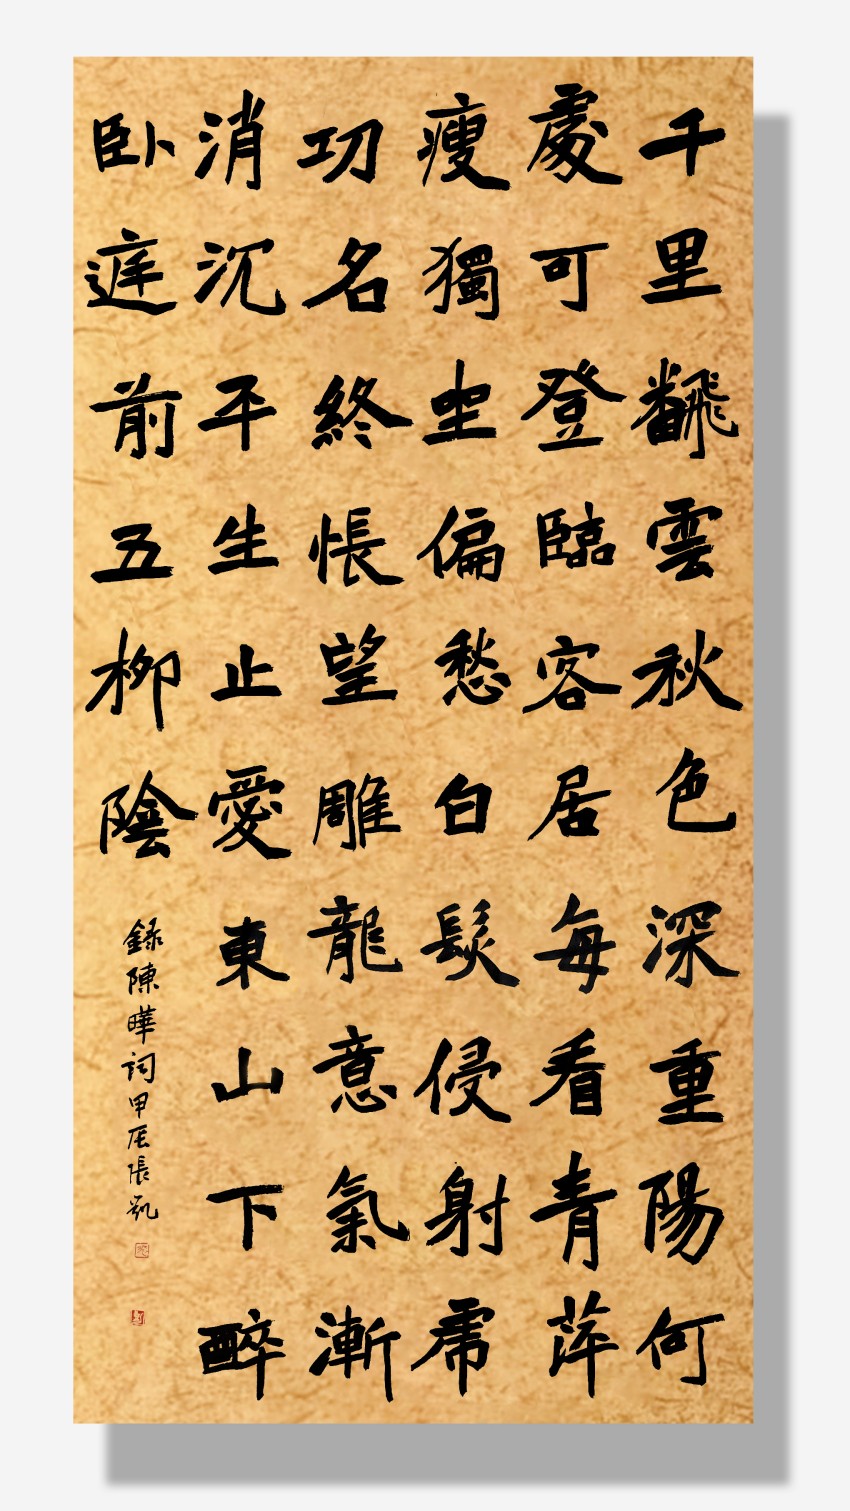 千里飜雲秋色深重陽何
處可登臨客居每看青萍
瘦獨坐偏愁白髮侵射虎
功名終悵望雕龍意氣漸
消沉平生止愛東山下醉
卧庭前五柳陰
錄陳曄詞甲辰張凱